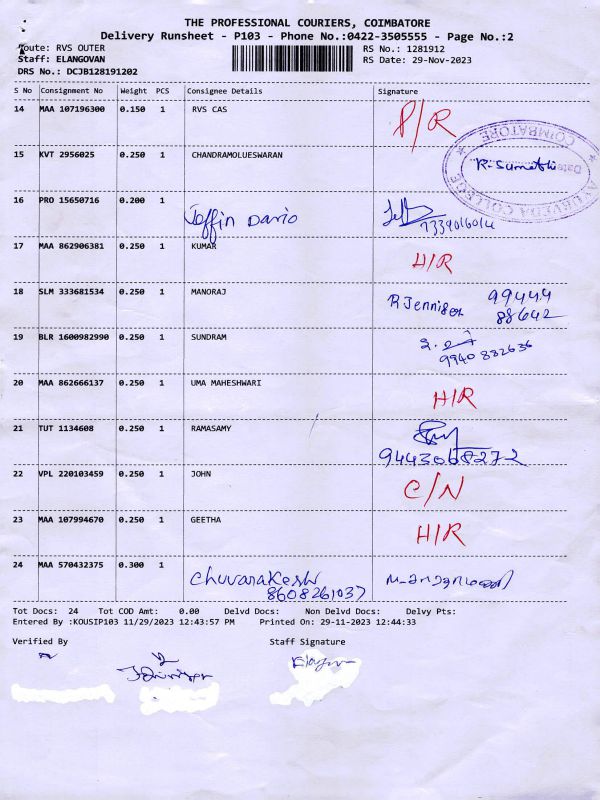 THE PROFESSIONAL COURIERS, COIMBATORE
Delivery Runsheet - P103 - Phone No.:0422-3505555 - Page No.:2
Route: RVS OUTER RS No.: 1281912
Staff: ELANGOVAN RS Date: 29-Nov-2023
DRS No.: DCJB128191202
S No Consignment No Weight PCS Consignee Details Signature
14 MAA 107196300 0.150 1 RVS CAS P/R
15 KVT 2956025 0.250 1 CHANDRAMOLUESWARAN R. Sumathi
COIMBATORE
Date
AYURVEDA COLLEGE
16 PRO 15650716 0.200 1
Joffin Dario
7339016014
17 MAA 862906381 0.250 1 KUMAR H/R
18 SLM 333681534 0.250 1 MANORAJ R Jennifer 99444
88642
19 BLR 1600982990 0.250 1 SUNDRAM
9940 832636
20 MAA 862666137 0.250 1 UMA MAHESHWARI H/R
21 TUT 1134608 0.250 1 RAMASAMY
9443068272
22 VPL 220103459 0.250 1 JOHN C/N
23 MAA 107994670 0.250 1 GEETHA H/R
24 MAA 570432375 0.300 1
Chuvarakesh
8608261037
Tot Docs: 24 Tot COD Amt: 0.00 Delvd Docs: Non Delvd Docs: Delvy Pts:
Entered By :KOUSIP103 11/29/2023 12:43:57 PM Printed On: 29-11-2023 12:44:33
Verified By Staff Signature